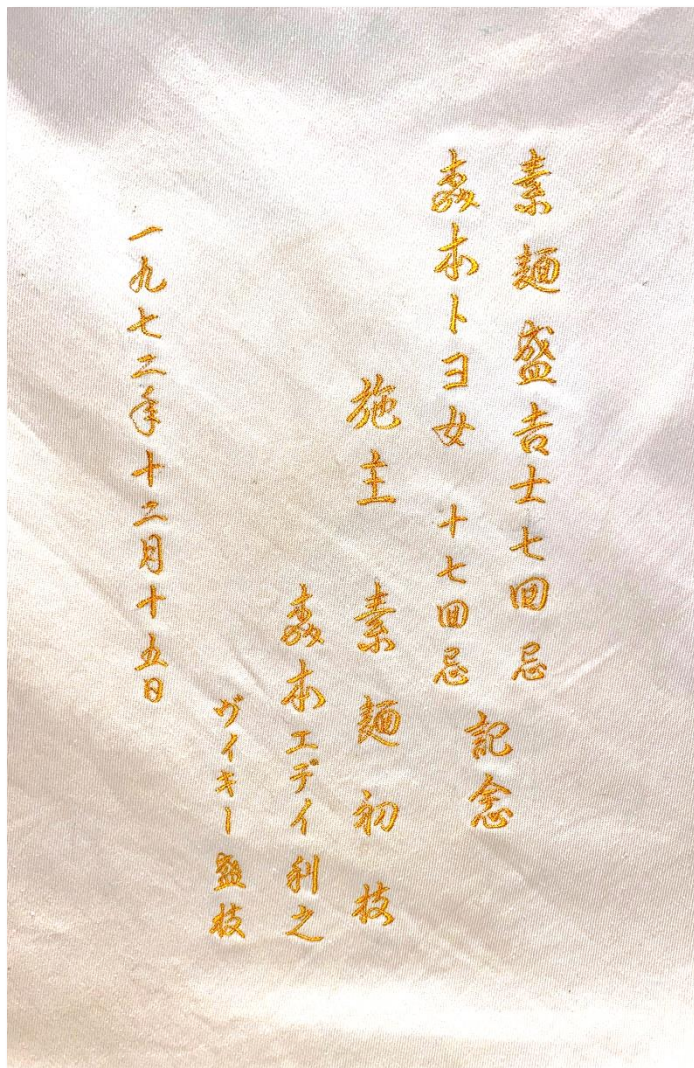 素麺盛吉士七回忌
森本トヨ女 十七回忌
記念
施主 素麺初枝
森本エデイ利之
ヴイキー盛枝
一九七二年十二月十五日